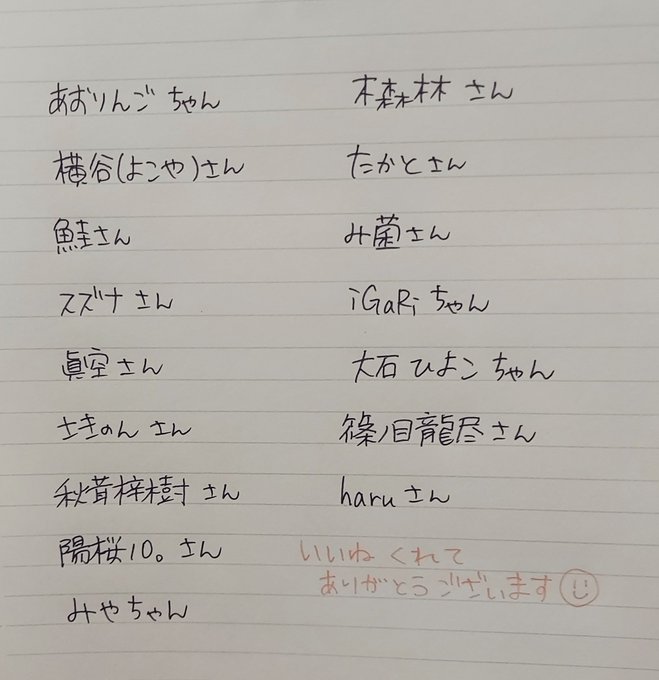 あおりんご ちゃん
横谷(よこや)さん
鮭さん
スズナ さん
眞空さん
さきのん さん
秋茸梓樹 さん
陽桜10。さん
みやちゃん
木森林 さん
たかとさん
み菌さん
iGaRi ちゃん
大石 ひよこ ちゃん
篠ノ目龍尽さん
haru さん
いいね くれて
ありがとう ございます